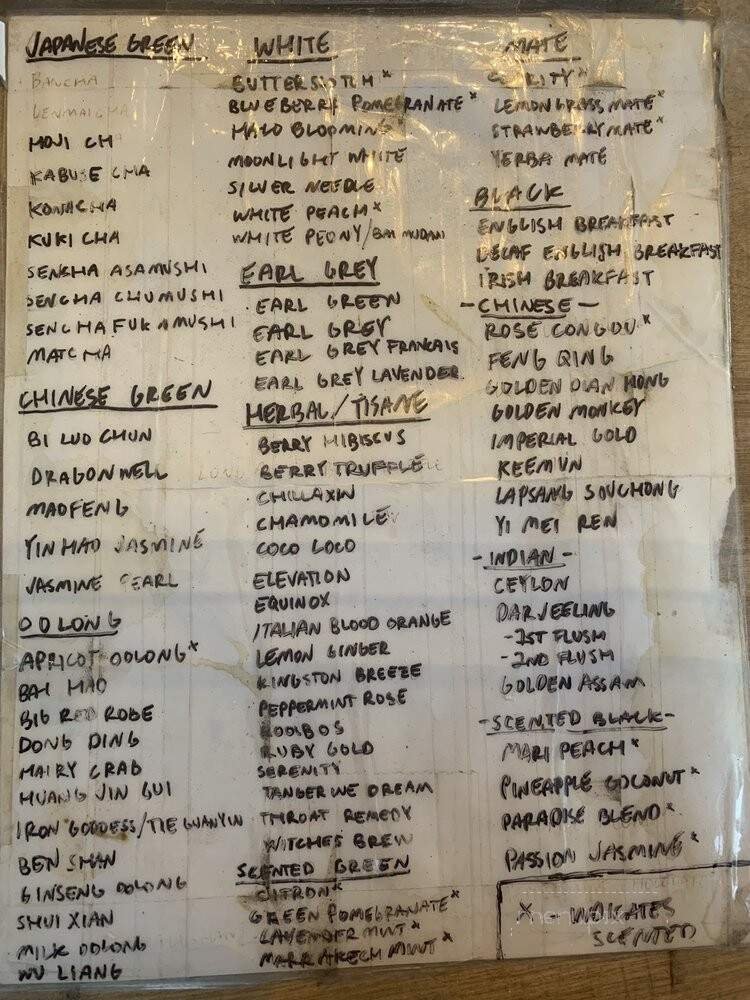 JAPANESE GREEN
BANCHA
GENMAICHA
HOJI CH
KABUSE CHA
KONACHA
KUKI CHA
SENCHA ASAMUSHI
SENCHA CHUMUSHI
SENCHA FUKAMUSHI
MATCHA
CHINESE GREEN
BI LUO CHUN
DRAGONWELL
MAOFENG
YIN HAO JASMINE
JASMINE PEARL
OOLONG
APRICOT OOLONG*
BAI HAO
BIG RED ROBE
DONG DING
HAIRY CRAB
HUANG JIN GUI
IRON GODDESS/TIE GUANYIN
BEN SHAN
GINSENG OOLONG
SHUI XIAN
MILK OOLONG
WU LIANG
WHITE
BUTTERSCOTCH*
BLUEBERRY POMEGRANATE*
HALO BLOOMING*
MOONLIGHT WHITE
SILVER NEEDLE
WHITE PEACH*
WHITE PEONY/BAI MUDAN
EARL GREY
EARL GREEN
EARL GREY
EARL GREY FRANCAIS
EARL GREY LAVENDER
HERBAL/TISANE
BERRY HIBISCUS
BERRY TRUFFLE
CHILLAXIN
CHAMOMILE
COCO LOCO
ELEVATION
EQUINOX
ITALIAN BLOOD ORANGE
LEMON GINGER
KINGSTON BREEZE
PEPPERMINT ROSE
ROOIBOS
RUBY GOLD
SERENITY
TANGERINE DREAM
THROAT REMEDY
WITCHES BREW
SCENTED GREEN
CITRON*
GREEN POMEGRANATE*
LAVENDER MINT*
MARRAKECH MINT*
MATE
LEMONGRASS MATE*
STRAWBERRY MATE*
YERBA MATE
BLACK
ENGLISH BREAKFAST
DECAF ENGLISH BREAKFAST
IRISH BREAKFAST
- CHINESE -
ROSE CONGOU*
FENG QING
GOLDEN DIAN HONG
GOLDEN MONKEY
IMPERIAL GOLD
KEEMUN
LAPSANG SOUCHONG
YI MEI REN
- INDIAN -
CEYLON
DARJEELING
-1ST FLUSH
-2ND FLUSH
GOLDEN ASSAM
-SCENTED BLACK-
MARI PEACH*
PINEAPPLE COCONUT*
PARADISE BLEND*
PASSION JASMINE*
* INDICATES
SCENTED